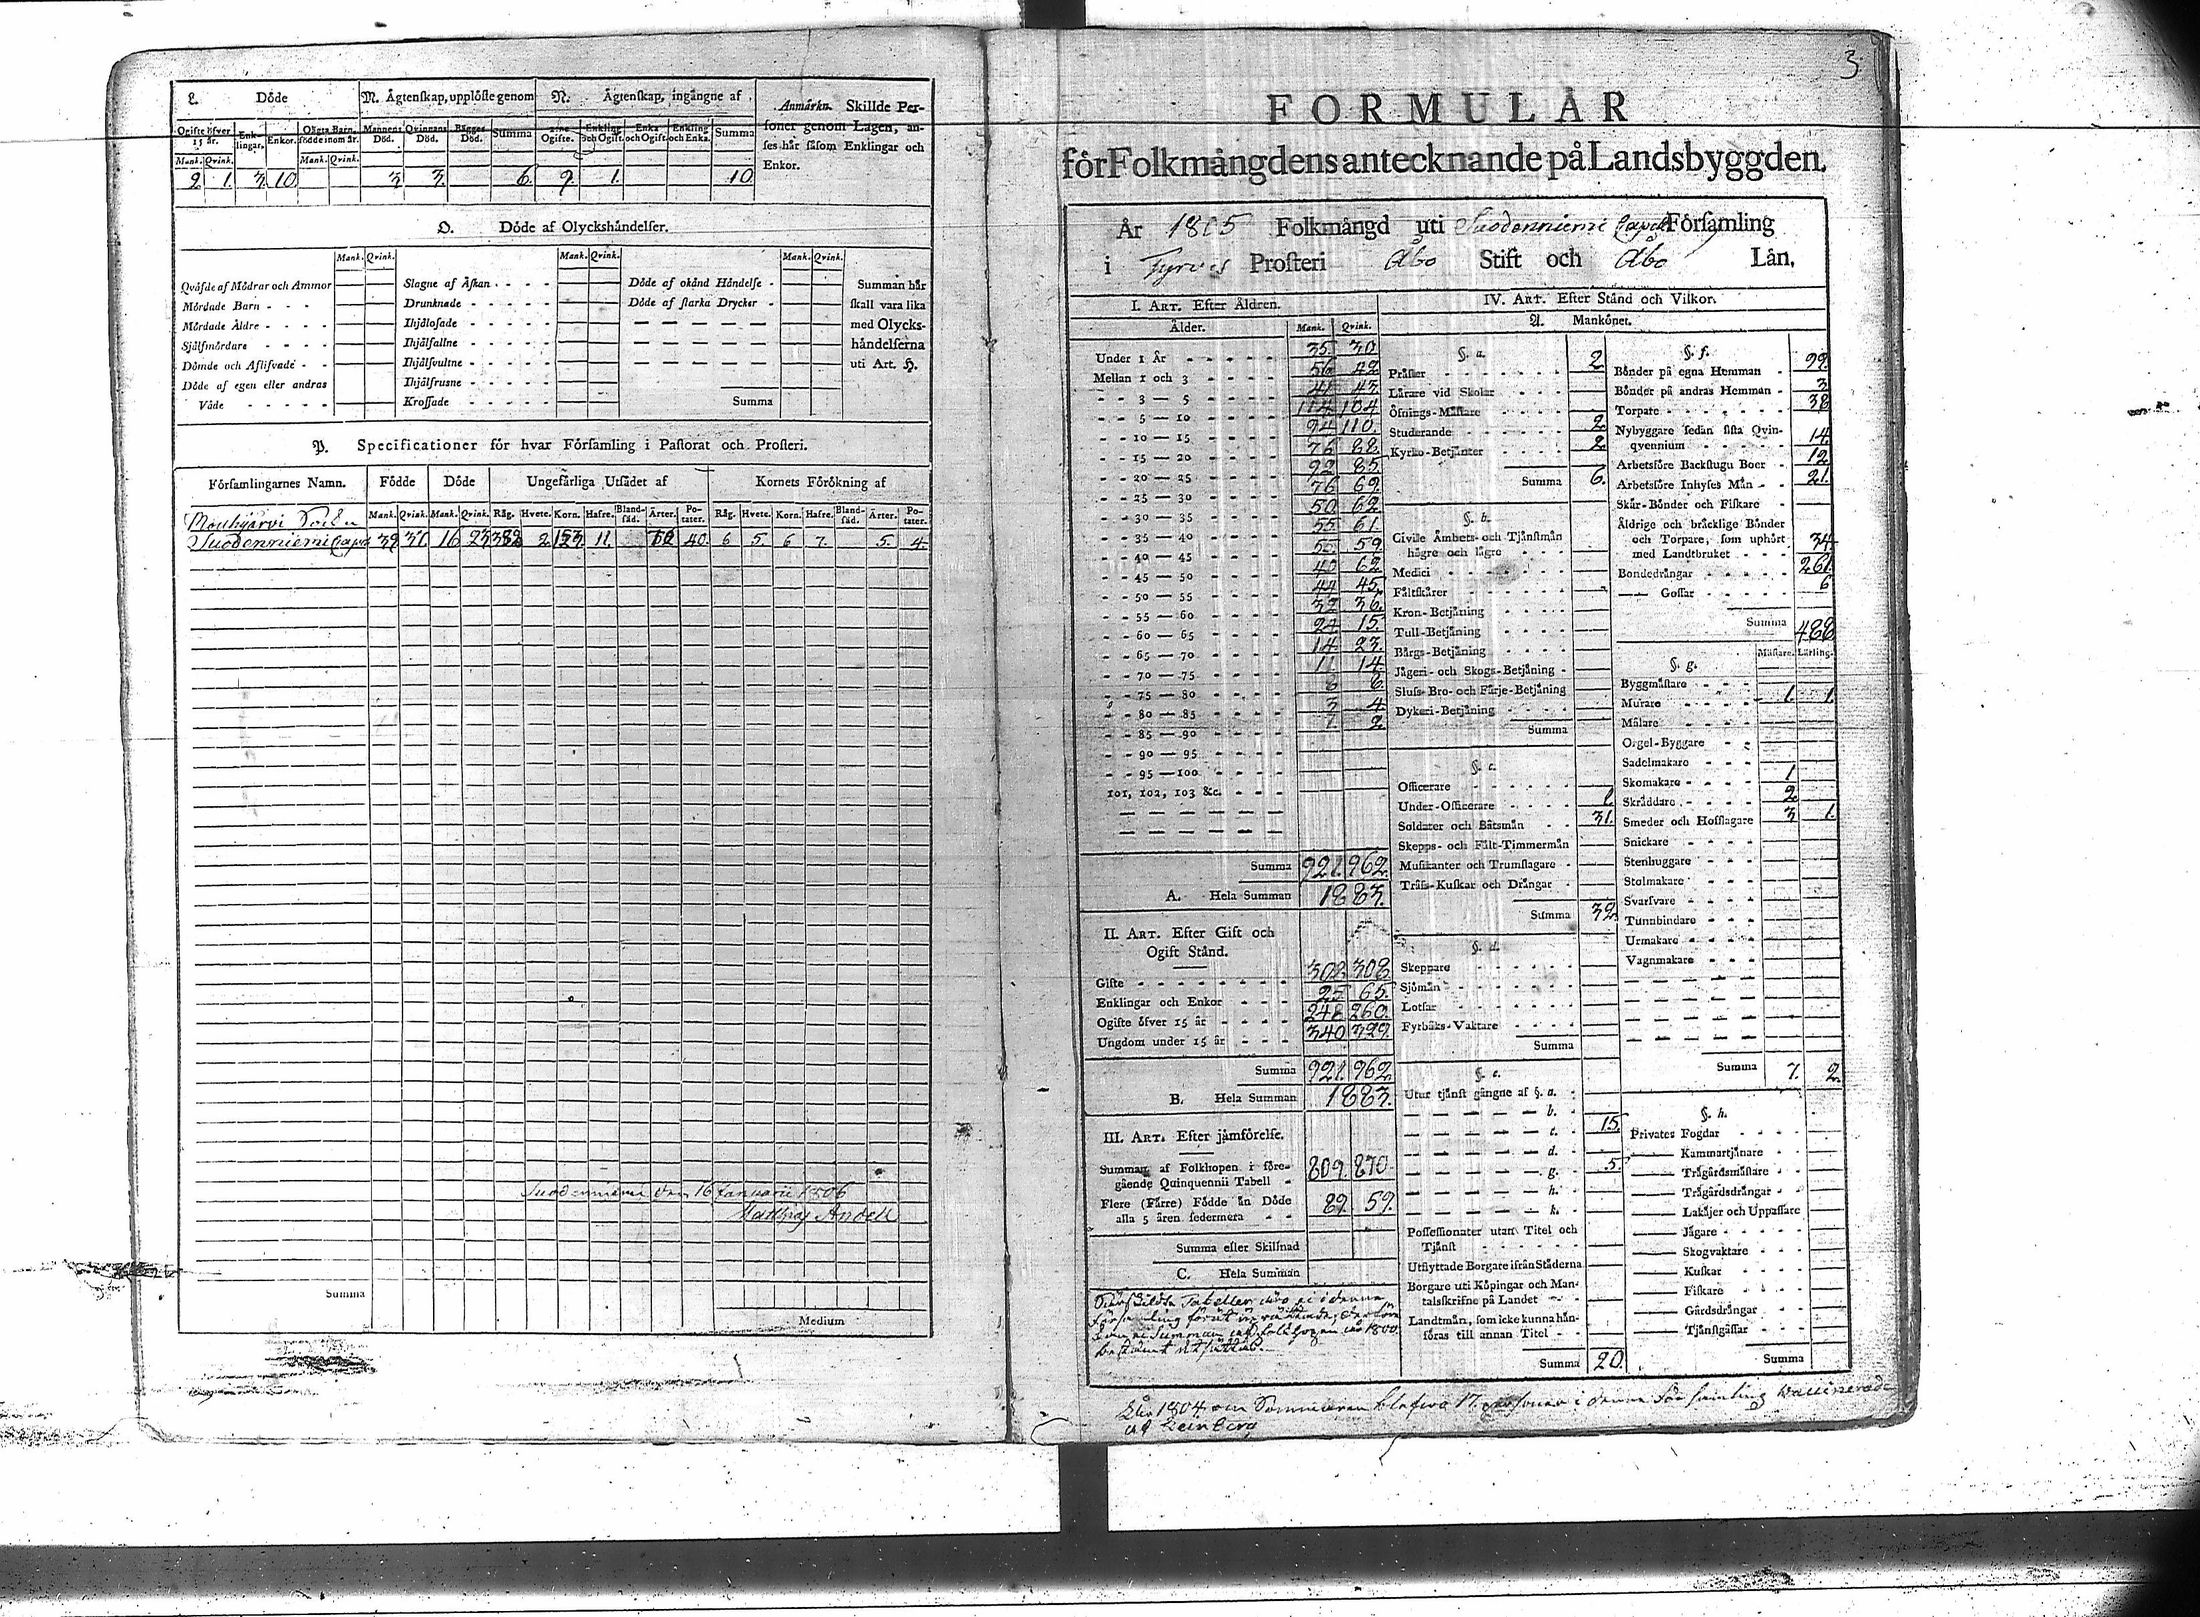 L. Döde
M. Ägtenskap, upplöste genom
N. Ägtenskap, ingångne af
Anmärkn. Skillde Per-
soner genom Lagen, an-
ses här såsom Enklingar och
Enkor.
Ogifte öfver 15 år. Enk-lingar. Enkor. Oägta Barn, födde inom år. Mannens Död. Qvinnans Död. Bägges Död. Summa Ogifte. Enkling och Ogift. Enka och Ogift. Enkling och Enka. Summa
Mank. Qvink. Mank. Qvink.
2 1. 3. 10. 3. 3. 6. 9. 1. 10.
O. Döde af Olyckshändelser.
Mank. Qvink. Mank. Qvink. Mank. Qvink.
Qväfde af Mödrar och Ammor
Mördade Barn
Mördade Äldre
Självmördare
Dömde och Aflifvade
Döde af egen eller andras
Våde
Slagne af Åskan
Drunknade
Ihjälösade
Ihjälfallne
Ihjälsvultne
Ihjälfrusne
Krossade
Döde af okänd Händelse
Döde af starka Drycker
Summa
Summan här
skall vara lika
med Olycks-
händelserna
uti Art. H.
P. Specificationer för hvar Församling i Pastorat och Prosteri.
Församlingarnes Namn. Födde Döde Ungefärliga Utsädet af Kornets Förökning af
Mank. Qvink. Mank. Qvink. Råg. Hvete. Korn. Hafre. Bland-säd. Ärter. Po-tater. Råg. Hvete. Korn. Hafre. Bland-säd. Ärter. Po-tater.
Mouhijärvi Sockn
Suodenniemi Capel 39 31. 16 23 382 2 153 11. 10 40. 6 5. 6 7. 5. 4.
Suodenniemi den 16 Januarii 1806
Matthias
Summa
Medium
3
FORMULÄR
för Folkmängdens antecknande på Landsbyggden.
År 1805 Folkmängd uti Suodenniemi Capell Församling
i Tyrvis Prosteri Åbo Stift och Åbo Län.
I. Art. Efter Åldren.
Ålder. Mank. Qvink.
Under 1 År 35. 30.
Mellan 1 och 3 56 42
3 — 5 41 43.
5 — 10 114 104
10 — 15 94 110.
15 — 20 76 88.
20 — 25 92 85.
25 — 30 76 69.
30 — 35 50 62
35 — 40 55 61.
40 — 45 55. 59
45 — 50 40 62
50 — 55 44 45.
55 — 60 32 36.
60 — 65 24 15.
65 — 70 14 23.
70 — 75 11. 14.
75 — 80 8 6.
80 — 85 3 4
85 — 90 1. 2
90 — 95
95 — 100
101, 102, 103 &c.
Summa 921. 962.
A. Hela Summan 1883.
II. Art. Efter Gift och
Ogift Stånd.
Gifte 308. 308.
Enklingar och Enkor 25 65.
Ogifte öfver 15 år 248 260.
Ungdom under 15 år 340 329.
Summa 921. 962.
B. Hela Summan 1883.
III. Art. Efter jämförelse.
Summan af Folkhopen i före-
gående Quinquennii Tabell 809. 870
Flere (Färre) Födde än Döde
alla 5 åren sedermera 89. 59.
Summa eller Skillnad
C. Hela Summan
Särskildta Tabeller äro ei i denna
IV. Art. Efter Stånd och Vilkor.
A. Mankönet.
§. a.
Präster 2
Lärare vid Skolar
Öfnings-Mästare
Studerande 2
Kyrko-Betjänter 2
Summa 6.
§. b.
Civile Ämbets- och Tjänstmän
högre och lägre
Medici
Fältskärer
Kron-Betjäning
Tull-Betjäning
Bärgs-Betjäning
Jägeri- och Skogs-Betjäning
Sluss- Bro- och Färje-Betjäning
Dykeri-Betjäning
Summa
§. c.
Officerare
Under-Officerare 1.
Soldater och Båtsmän 31.
Skepps- och Fält-Timmermän
Musikanter och Trumslagare
Träss-Kuskar och Drängar
Summa 32.
§. d.
Skeppare
Sjömän
Lotsar
Fyrbåks-Vaktare
Summa
§. e.
Utur tjänst gångne af §. a.
b.
c. 15.
d.
g. 5.
h.
k.
Possessionater utan Titel och
Tjänst
Utflyttade Borgare ifrån Städerna
Borgare uti Köpingar och Man-
talsskrifne på Landet
Landtmän, som icke kunna hän-
föras till annan Titel
Summa 20.
§. f.
Bönder på egna Hemman 99.
Bönder på andras Hemman 3
Torpare 38
Nybyggare sedan sista Qvin-
qvennium 14.
Arbetsföre Backstugu Boer 12
Arbetsföre Inhyses Män 21.
Skär-Bönder och Fiskare
Äldrige och bräcklige Bönder
och Torpare, som uphört
med Landtbruket 34
Bondedrängar 261.
—— Gossar 6
Summa 488
Mästare. Lärling.
§. g.
Byggmästare
Murare 1. 1.
Målare
Orgel-Byggare
Sadelmakare
Skomakare 1
Skräddare 2
Smeder och Hofslagare 3 1.
Snickare
Stenhuggare
Stolmakare
Svarfvare
Tunnbindare
Urmakare
Vagnmakare
Summa 7. 2.
§. h.
Privates Fogdar
—— Kammartjänare
—— Trägårdsmästare
—— Trägårdsdrängar
—— Lakäjer och Uppassare
—— Jägare
—— Skogvaktare
—— Kuskar
—— Fiskare
—— Gårdsdrängar
—— Tjänstgossar
Summa
År 1804 om Sommaren blefvo 17. personer i denna Församling Vaccinerade
af